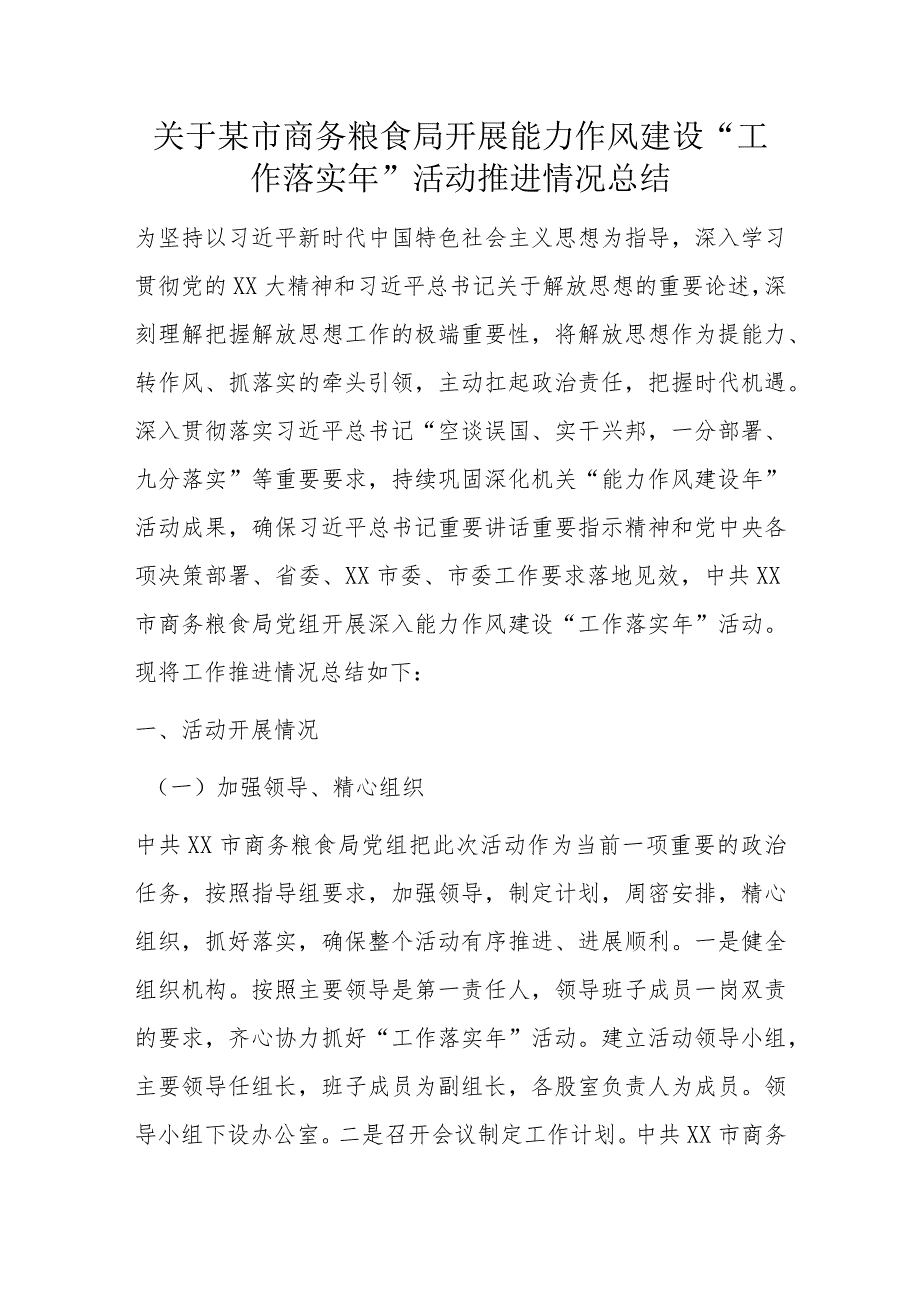 关于某市商务粮食局开展能力作风建设“工
作落实年”活动推进情况总结
为坚持以习近平新时代中国特色社会主义思想为指导，深入学习
贯彻党的 XX 大精神和习近平总书记关于解放思想的重要论述，深
刻理解把握解放思想工作的极端重要性，将解放思想作为提能力、
转作风、抓落实的牵头引领，主动扛起政治责任，把握时代机遇。
深入贯彻落实习近平总书记“空谈误国、实干兴邦，一分部署、
九分落实”等重要要求，持续巩固深化机关“能力作风建设年”
活动成果，确保习近平总书记重要讲话重要指示精神和党中央各
项决策部署、省委、XX 市委、市委工作要求落地见效，中共 XX
市商务粮食局党组开展深入能力作风建设“工作落实年”活动。
现将工作推进情况总结如下：
一、活动开展情况
（一）加强领导、精心组织
中共 XX 市商务粮食局党组把此次活动作为当前一项重要的政治
任务，按照指导组要求，加强领导，制定计划，周密安排，精心
组织，抓好落实，确保整个活动有序推进、进展顺利。一是健全
组织机构。按照主要领导是第一责任人，领导班子成员一岗双责
的要求，齐心协力抓好“工作落实年”活动。建立活动领导小组，
主要领导任组长，班子成员为副组长，各股室负责人为成员。领
导小组下设办公室。二是召开会议制定工作计划。中共 XX 市商务